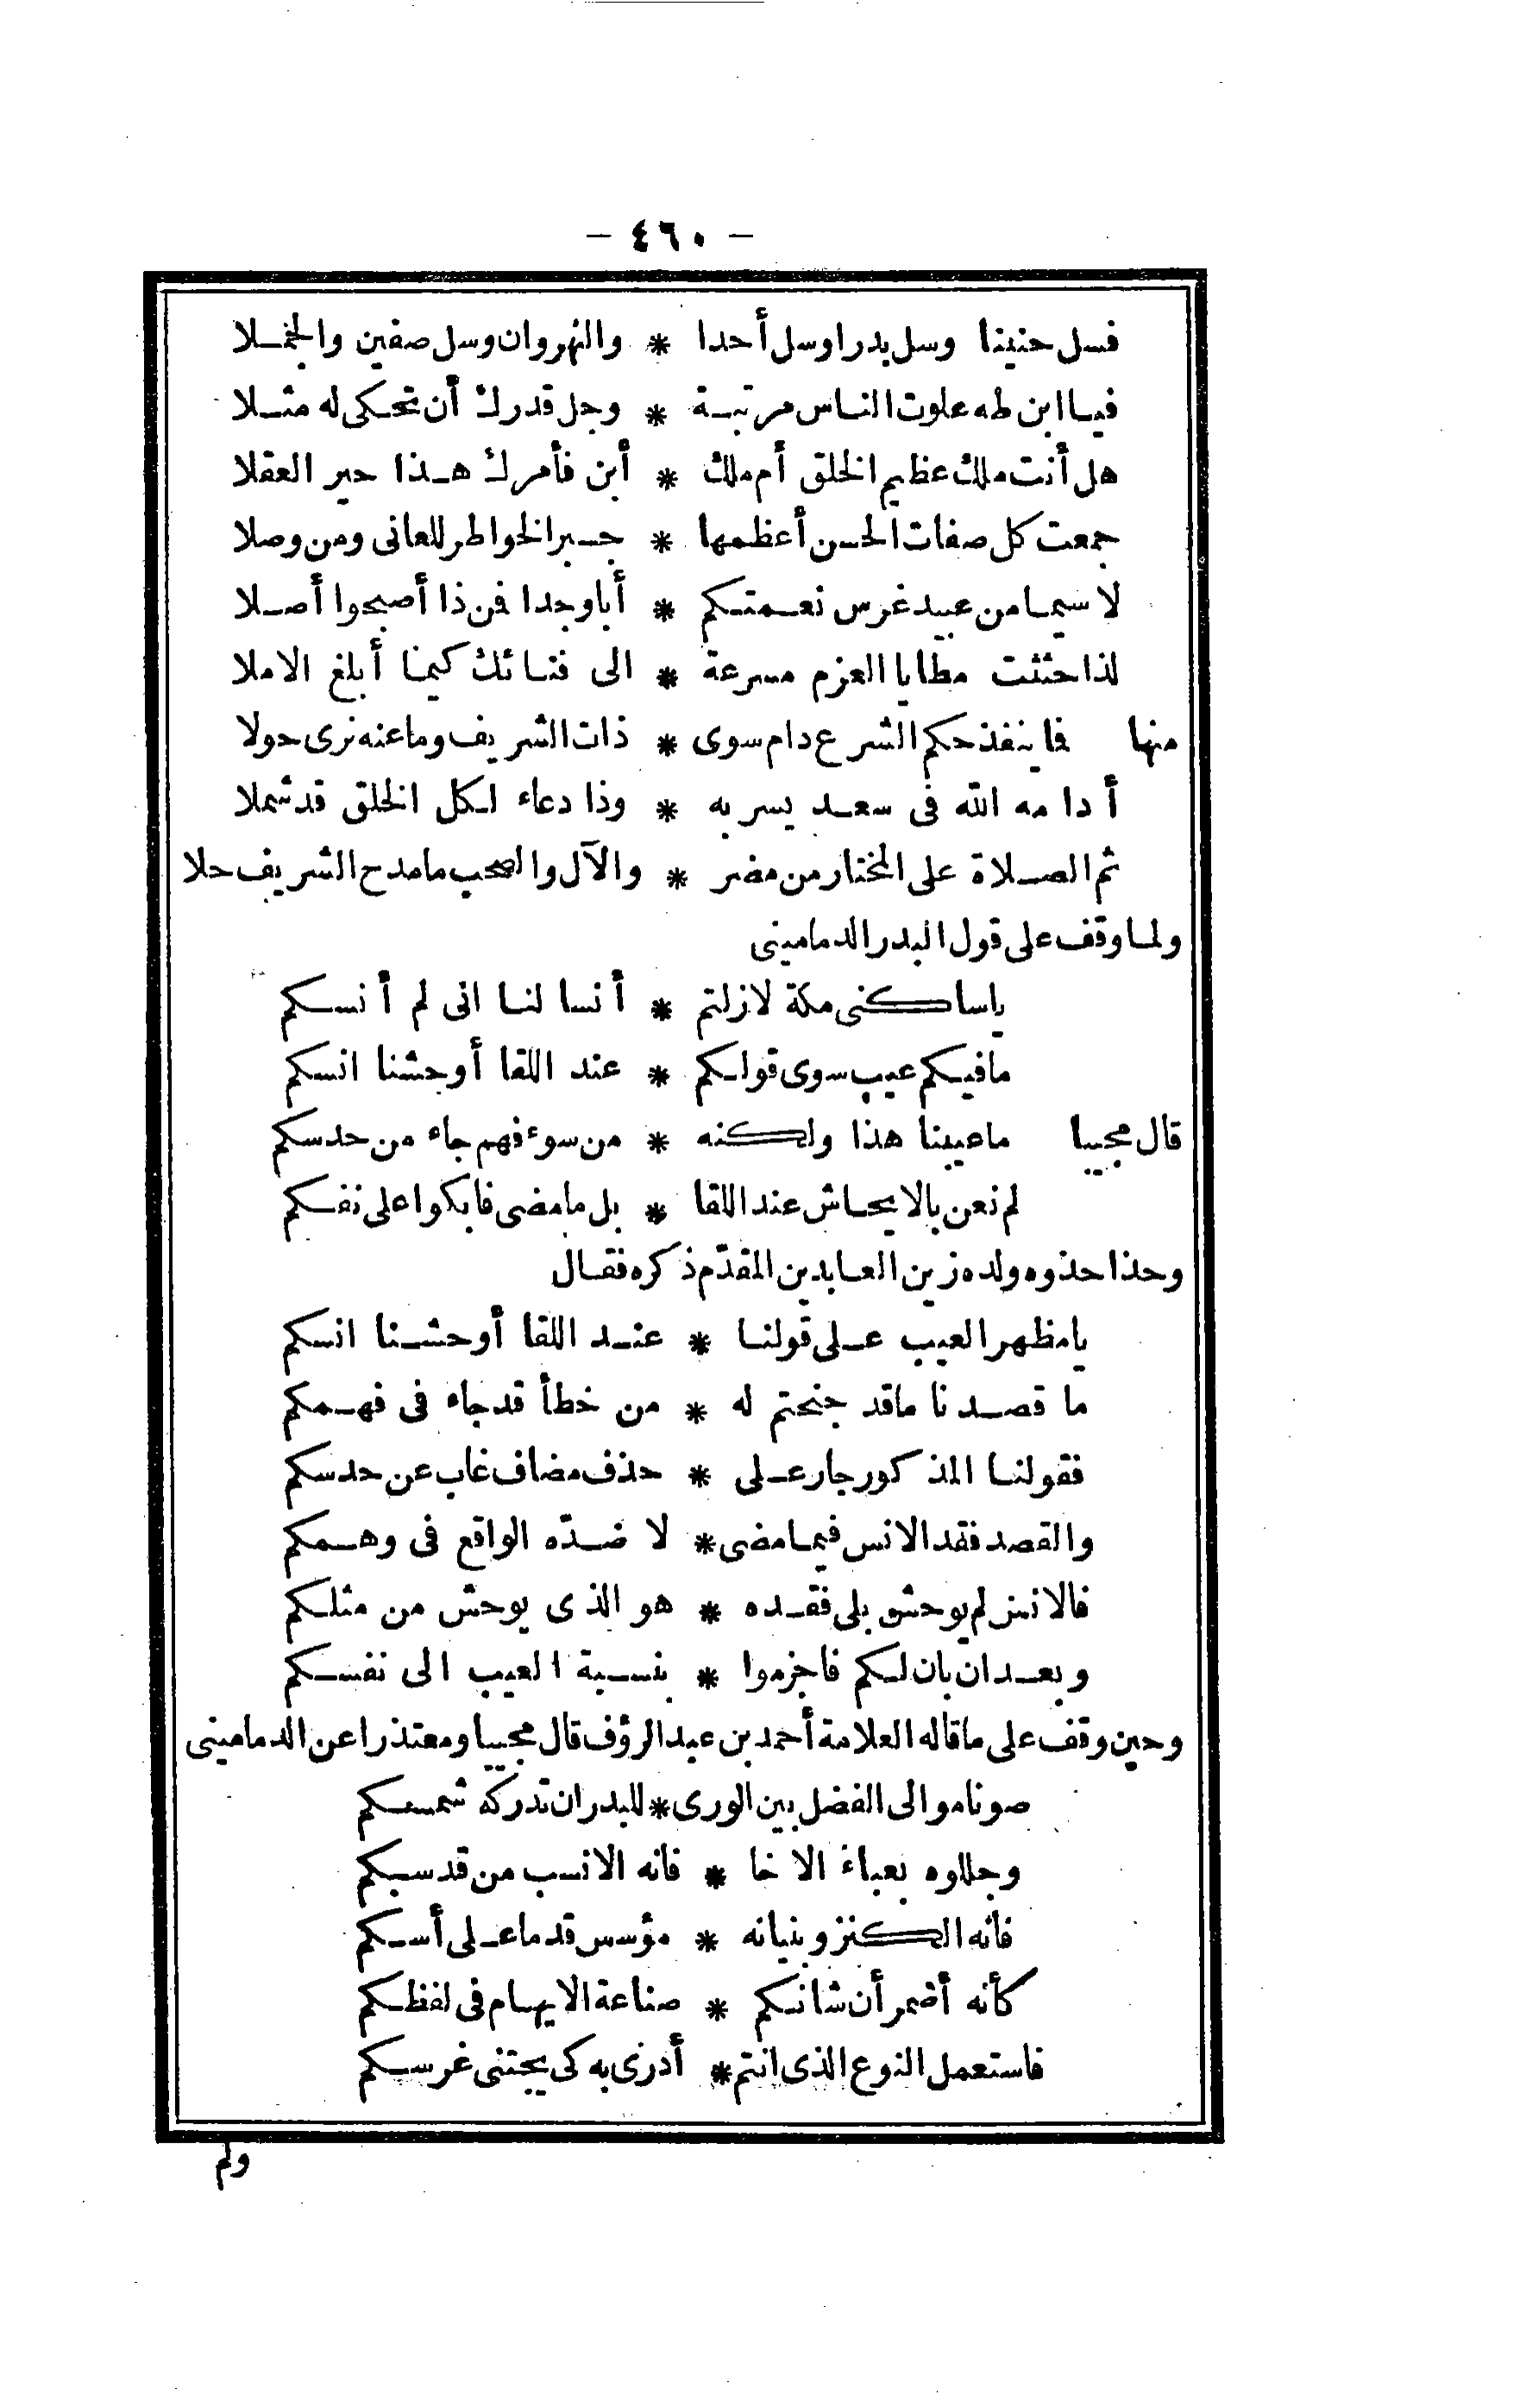 - ٤٦٠ -
فسل حنينا وسل بدرا وسل أحدا * والنهروان وسل صفين والجملا
فيا ابن طه علوت الناس مرتبة * وجل قدرك أن تحكى له مثلا
هل أنت ملك عظيم الخلق أم ملك * أبن فأمرك هذا حير العقلا
جمعت كل صفات الحسن أعظمها * جبر الخواطر للعانى ومن وصلا
لا سيما من عبيد غرس نعمتكم * أبا وجدا فن ذا أصبحوا أصلا
لذا حثثت مطايا العزم مسرعة * الى فنائك كيما أبلغ الاملا
منها فا ينفذ حكم الشرع دام سوى * ذات الشريف وما عنه نرى حولا
أدامه الله فى سعد يسر به * وذا دعاء لكل الخلق قد شملا
ثم الصلاة على المختار من مضر * والآل والصحب ما مدح الشريف حلا
ولما وقف على قول البدر الدمامينى
يا ساكنى مكة لا زلتم * أنسا لنا انى لم أنسكم
ما فيكم عيب سوى قولكم * عند اللقا أوحشنا انسكم
قال مجيبا ما عيبنا هذا ولكنه * من سوء فهم جاء من حدسكم
لم نعن بالايحاش عند اللقا * بل ما مضى فابكوا على نفسكم
وحذا حذوه ولده زين العابدين المقدّم ذكره فقال
يا مظهر العيب على قولنا * عند اللقا أوحشنا انسكم
ما قصدنا ما قد جنحتم له * من خطأ قد جاء فى فهمكم
فقولنا المذكور جار على * حذف مضاف غاب عن حدسكم
والقصد فقد الانس فيما مضى * لا ضدّه الواقع فى وهمكم
فالانس لم يوحش بلى فقده * هو الذى يوحش من مثلكم
وبعد ان بان لكم فاجزموا * بنسبة العيب الى نفسكم
وحين وقف على ما قاله العلامة أحمد بن عبد الرؤف قال مجيبا ومعتذرا عن الدمامينى
صونا موالى الفضل بين الورى * للبدر ان تدركه شمسكم
وجللوه بعباء الاخا * فانه الانسب من قدسكم
فانه الكنز وبنيانه * مؤسس قدما على أسكم
كأنه أضمر أن شانكم * صناعة الايهام فى لفظكم
فاستعمل النوع الذى انتم * أدرى به كى يجتنى غرسكم
ولم